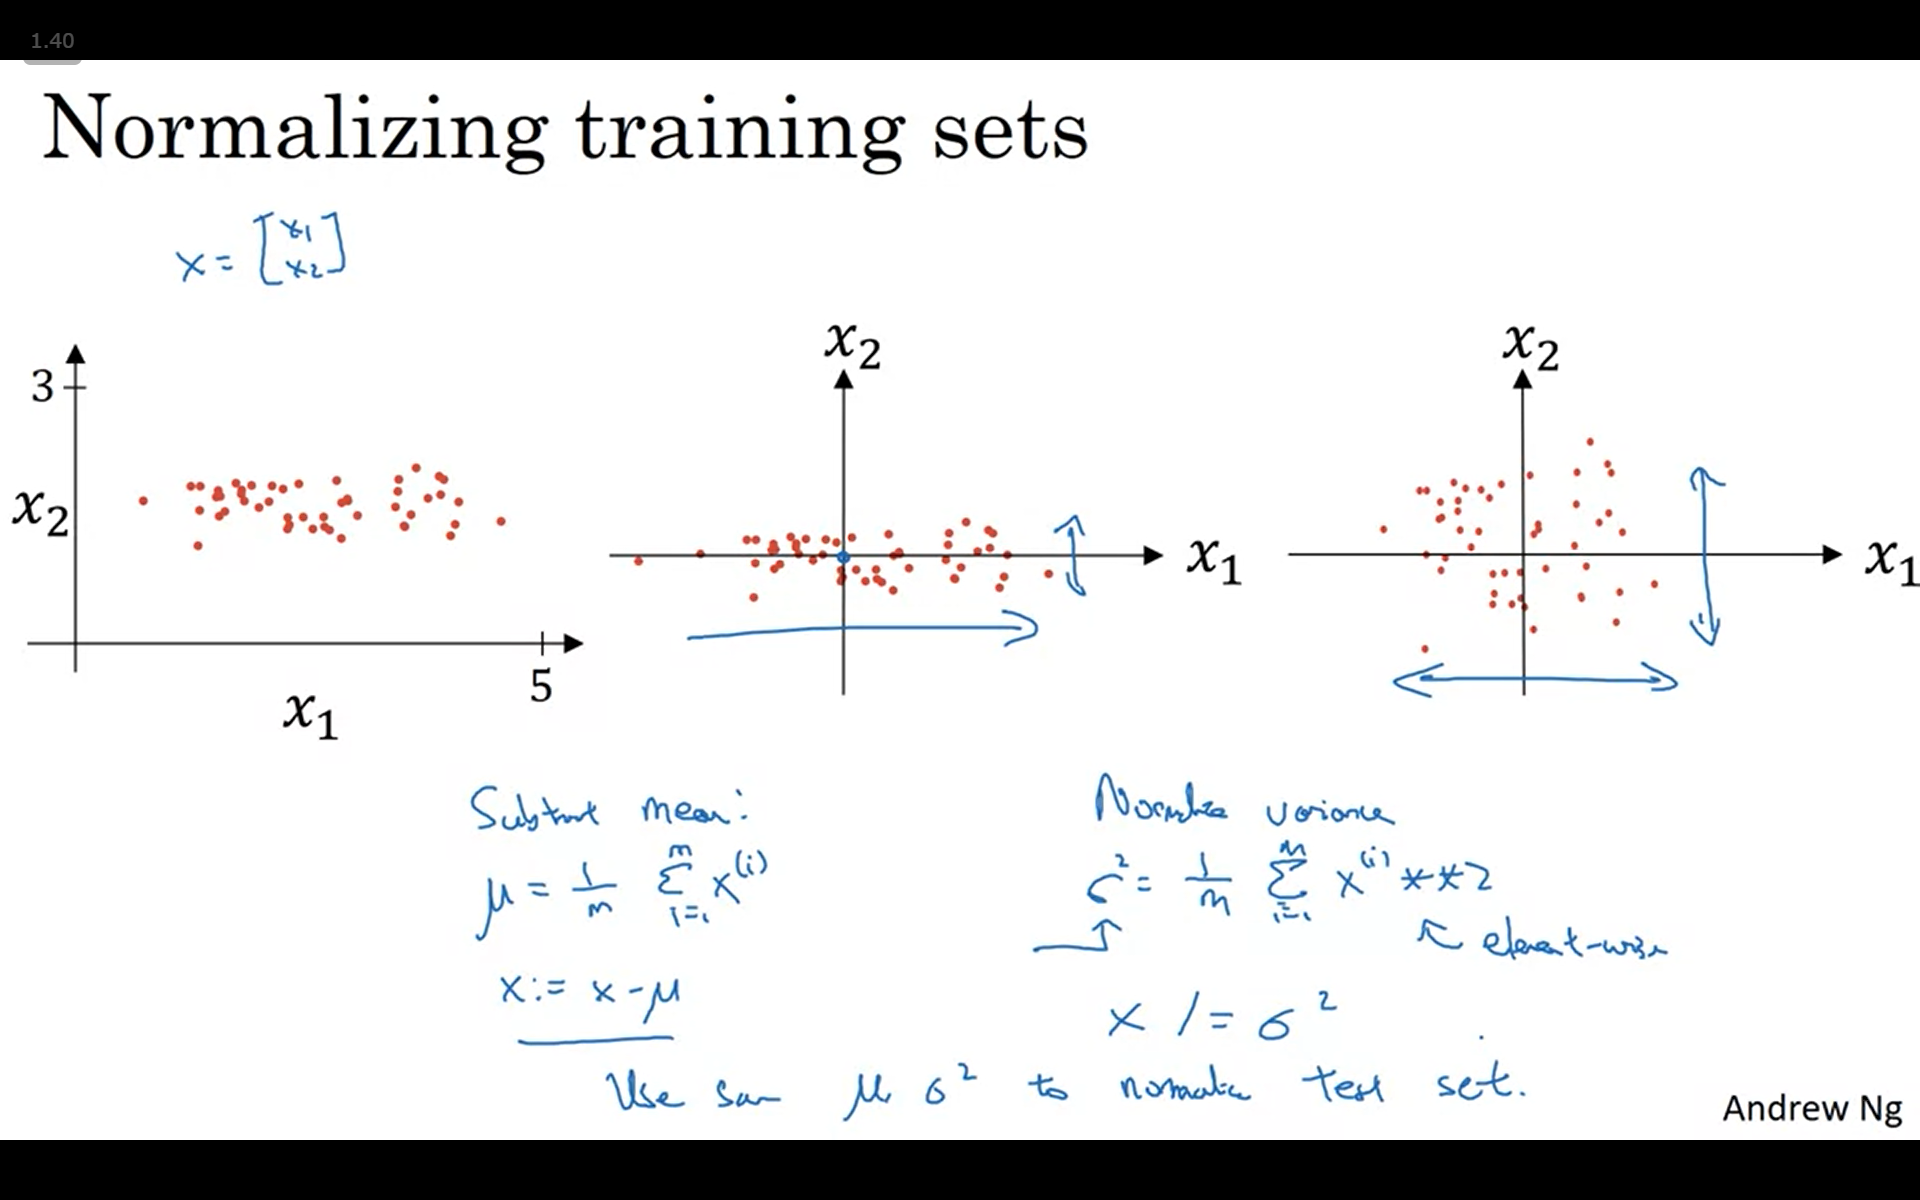 1.40
Normalizing training sets
x = [x1
x2]
3
x2
5
x1
x2
x1
x2
x1
Subtract mean:
μ = 1/m Σ_{i=1}^{m} x^(i)
x := x - μ
Normalize variance
σ² = 1/m Σ_{i=1}^{m} x^(i) **2
element-wise
x /= σ²
Use same μ, σ² to normalize test set.
Andrew Ng